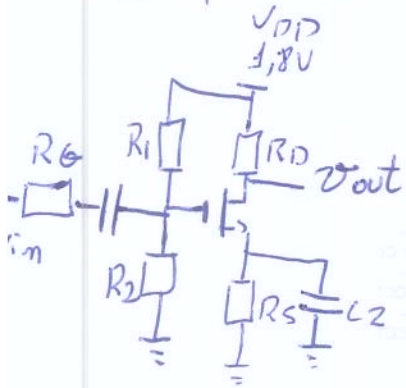 VDD
1,8V
RG
R1
RD
vout
in
R2
RS
C2